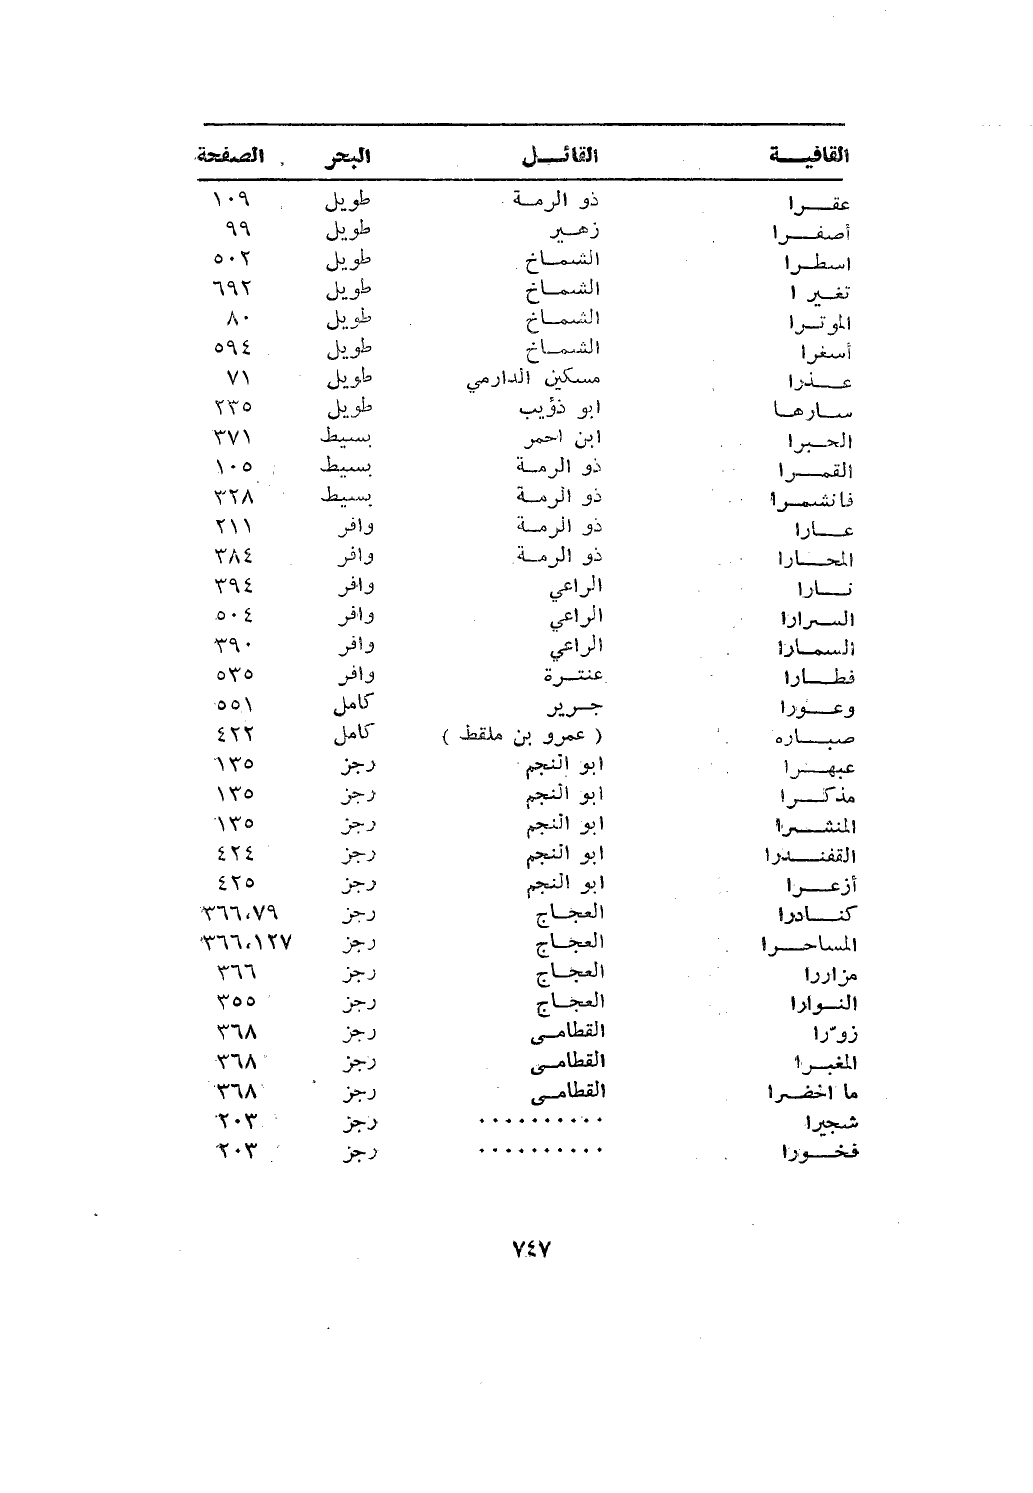 القافية القائل البحر الصفحة
عقرا ذو الرمة طويل ١٠٩
أصفرا زهير طويل ٩٩
اسطرا الشماخ طويل ٥٠٢
تغيرا الشماخ طويل ٦٩٢
الموترا الشماخ طويل ٨٠
أسفرا الشماخ طويل ٥٩٤
عذرا مسكين الدارمي طويل ٧١
سارها ابو ذؤيب طويل ٢٣٥
الحبرا ابن احمر بسيط ٣٧١
القمرا ذو الرمة بسيط ١٠٥
فانشمرا ذو الرمة بسيط ٣٢٨
عارا ذو الرمة وافر ٢١١
المحارا ذو الرمة وافر ٣٨٤
نارا الراعي وافر ٣٩٤
السرارا الراعي وافر ٥٠٤
السمارا الراعي وافر ٣٩٠
فطارا عنترة وافر ٥٣٥
وعورا جرير كامل ٥٥١
صباره ( عمرو بن ملقط ) كامل ٤٢٢
عبهرا ابو النجم رجز ١٣٥
مذكرا ابو النجم رجز ١٣٥
المنشرا ابو النجم رجز ١٣٥
القفندرا ابو النجم رجز ٤٢٤
أزعرا ابو النجم رجز ٤٢٥
كنادرا العجاج رجز ٣٦٦،٧٩
المساحرا العجاج رجز ٣٦٦،١٢٧
مزاررا العجاج رجز ٣٦٦
النوارا العجاج رجز ٣٥٥
زوّرا القطامى رجز ٣٦٨
المغبرا القطامى رجز ٣٦٨
ما اخضرا القطامى رجز ٣٦٨
شجيرا .......... رجز ٢٠٣
فخورا .......... رجز ٢٠٣
٧٤٧